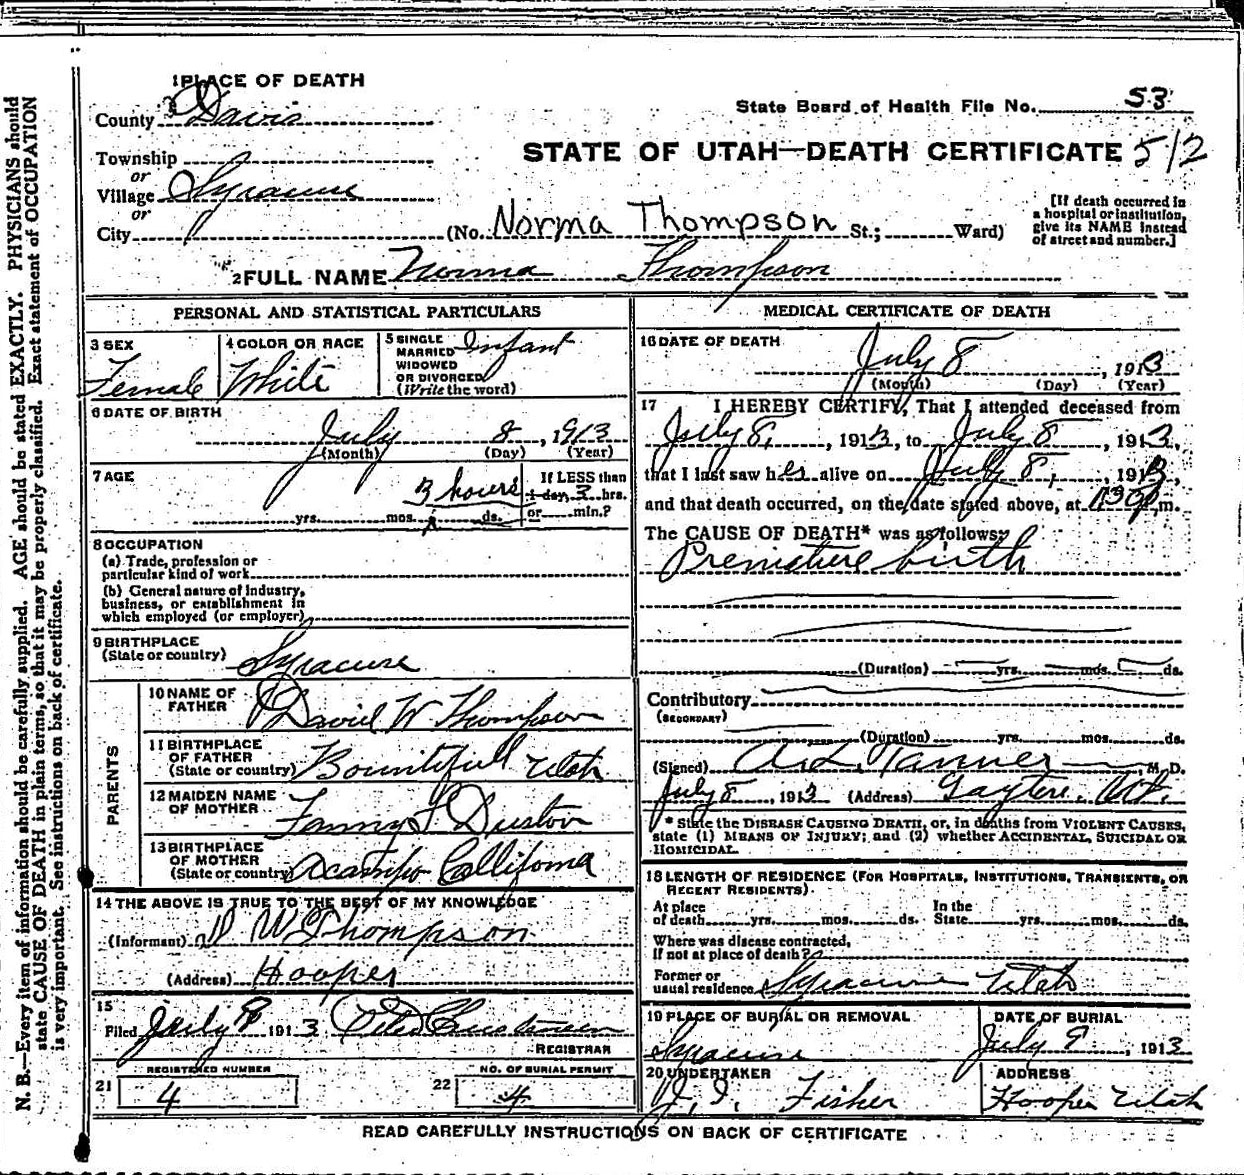 1 PLACE OF DEATH
County Davis
State Board of Health File No. 53
Township
or
STATE OF UTAH—DEATH CERTIFICATE 512
Village Syracuse
or
City (No. Norma Thompson St.; Ward)
[If death occurred in
a hospital or institution,
give its NAME instead
of street and number.]
2 FULL NAME Norma Thompson
PERSONAL AND STATISTICAL PARTICULARS
3 SEX
Female
4 COLOR OR RACE
White
5 SINGLE
MARRIED
WIDOWED
OR DIVORCED
(Write the word)
Infant
6 DATE OF BIRTH
July 8, 1913
(Month) (Day) (Year)
7 AGE
3 hours
yrs. mos. ds.
If LESS than
1 day, 3 hrs.
or min.?
8 OCCUPATION
(a) Trade, profession or
particular kind of work
(b) General nature of industry,
business, or establishment in
which employed (or employer)
9 BIRTHPLACE
(State or country) Syracuse
PARENTS
10 NAME OF
FATHER David W Thompson
11 BIRTHPLACE
OF FATHER
(State or country) Bountifull Utah
12 MAIDEN NAME
OF MOTHER Fanny S Duston
13 BIRTHPLACE
OF MOTHER
(State or country) Acampo California
14 THE ABOVE IS TRUE TO THE BEST OF MY KNOWLEDGE
(Informant) D W Thompson
(Address) Hooper
15
Filed July 8 1913
REGISTRAR
REGISTERED NUMBER
21 4
NO. OF BURIAL PERMIT
22 4
MEDICAL CERTIFICATE OF DEATH
16 DATE OF DEATH
July 8, 1913
(Month) (Day) (Year)
17 I HEREBY CERTIFY, That I attended deceased from
July 8, 1913, to July 8, 1913,
that I last saw her alive on July 8, 1913,
and that death occurred, on the date stated above, at 1130 p m.
The CAUSE OF DEATH* was as follows:
Premature birth
(Duration) yrs. mos. ds.
Contributory
(SECONDARY)
(Duration) yrs. mos. ds.
(Signed) A. L. Tanner, M. D.
July 8, 1913 (Address) Layton. Ut.
* State the DISEASE CAUSING DEATH, or, in deaths from VIOLENT CAUSES,
state (1) MEANS OF INJURY; and (2) whether ACCIDENTAL, SUICIDAL OR
HOMICIDAL.
18 LENGTH OF RESIDENCE (FOR HOSPITALS, INSTITUTIONS, TRANSIENTS, OR
RECENT RESIDENTS).
At place
of death yrs. mos. ds.
In the
State yrs. mos. ds.
Where was disease contracted,
If not at place of death?
Former or
usual residence Syracuse Utah
19 PLACE OF BURIAL OR REMOVAL
Syracuse
DATE OF BURIAL
July 9, 1913
20 UNDERTAKER
J. I. Fisher
ADDRESS
Hooper Utah
READ CAREFULLY INSTRUCTIONS ON BACK OF CERTIFICATE
N. B.—Every item of information should be carefully supplied. AGE should be stated EXACTLY. PHYSICIANS should
state CAUSE OF DEATH in plain terms, so that it may be properly classified. Exact statement of OCCUPATION
is very important. See instructions on back of certificate.